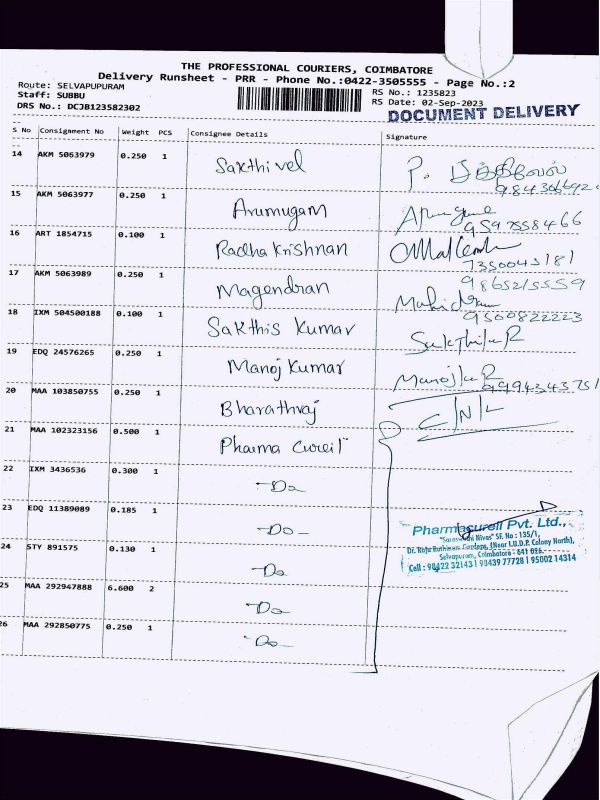 THE PROFESSIONAL COURIERS, COIMBATORE
Delivery Runsheet - PRR - Phone No.:0422-3505555 - Page No.:2
Route: SELVAPUPURAM
Staff: SUBBU
DRS No.: DCJB123582302
RS No.: 1235823
RS Date: 02-Sep-2023
DOCUMENT DELIVERY
S No Consignment No Weight PCS Consignee Details Signature
14 AKM 5063979 0.250 1 Sakthivel P.
15 AKM 5063977 0.250 1 Arumugam
9597558466
16 ART 1854715 0.100 1 Radha Krishnan
7350045181
17 AKM 5063989 0.250 1 Magendran
9865215559
18 IXM 504500188 0.100 1 Sakthis Kumar
9500822223
19 EDQ 24576265 0.250 1 Manoj Kumar
20 MAA 103850755 0.250 1 Bharathraj
9994343751
C/N/L
21 MAA 102323156 0.500 1 Pharma Cureil
22 IXM 3436536 0.300 1 -Do-
23 EDQ 11389089 0.185 1 -Do-
24 STY 891575 0.130 1 -Do-
25 MAA 292947888 6.600 2 -Do-
26 MAA 292850775 0.250 1 -Do-
Pharmasureil Pvt. Ltd.,
"Saraswathi Nivas" SF. No : 135/1,
Dr. Raja Rathinam Gardens, (Near I.U.D.P. Colony North),
Selvapuram, Coimbatore - 641 026.
Cell : 98422 32143 | 93439 77728 | 95002 14314